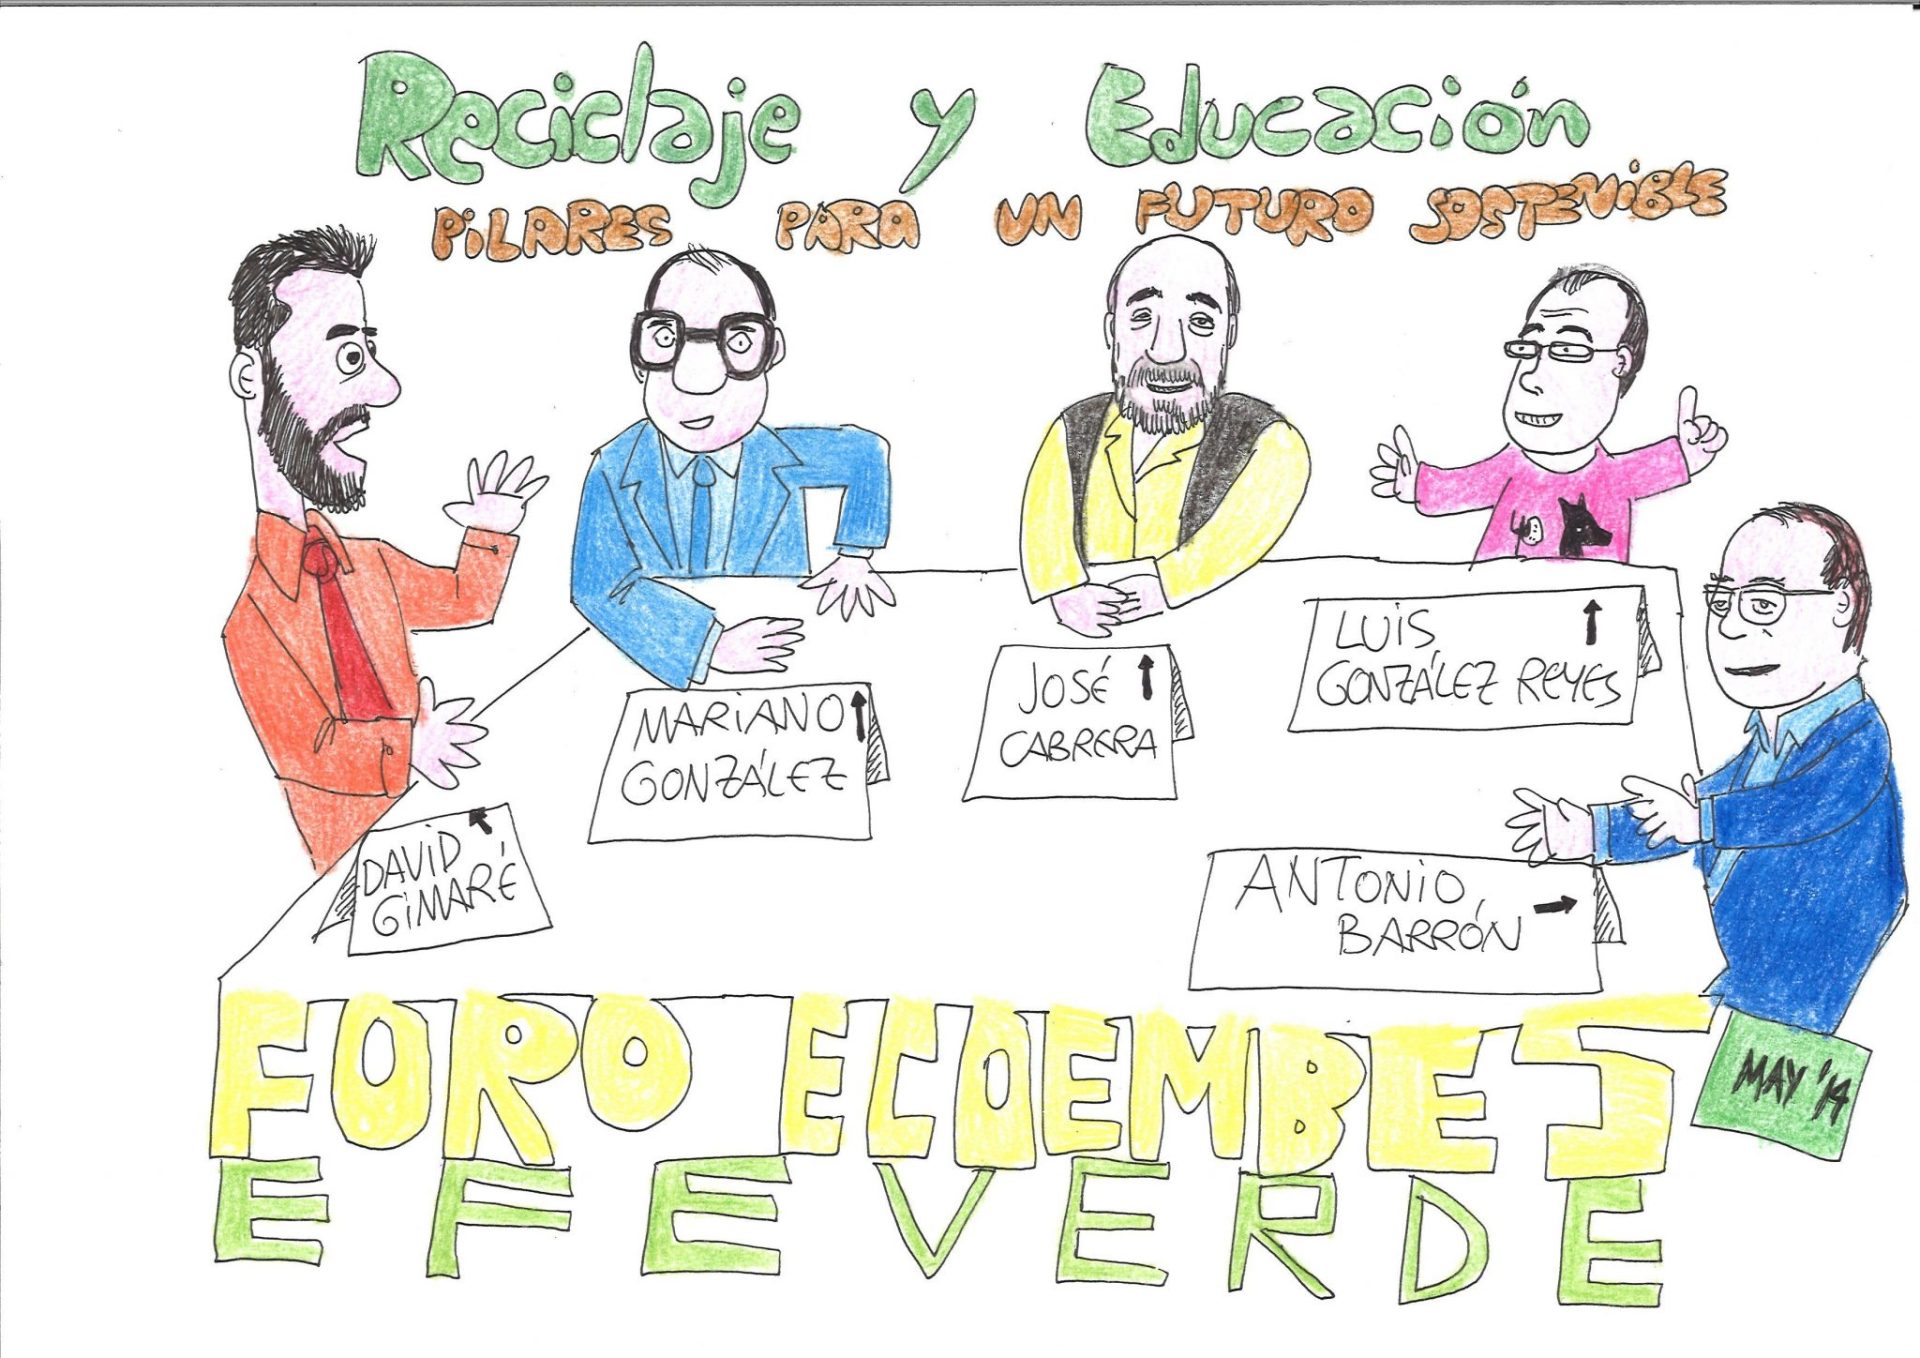 Reciclaje y Educación
PILARES PARA UN FUTURO SOSTENIBLE
LUIS
GONZÁLEZ REYES
JOSÉ
CABRERA
MARIANO
GONZÁLEZ
DAVID
GIMARÉ
ANTONIO
BARRÓN
FORO ECOEMBES
EFEVERDE
MAY '14